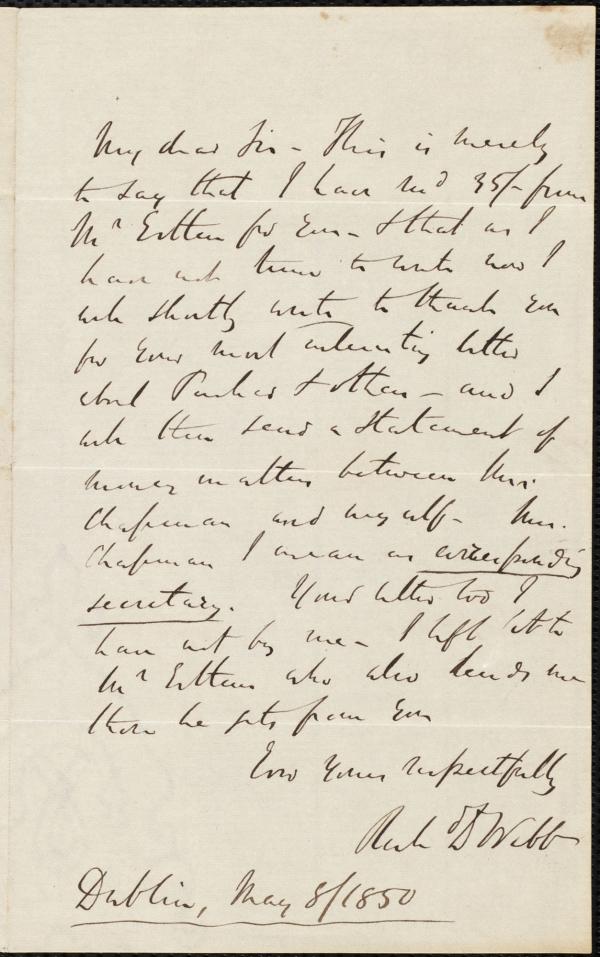 My dear Sir – This is merely
to say that I have rec'd 35/- from
Mr Estlin for you – & that as I
have not time to write now I
will shortly write to thank you
for your most interesting letter
about Parker & others – and I
will then send a statement of
money matters between Mrs.
Chapman and myself – Mrs.
Chapman I mean as corresponding
secretary. Your letter too I
have not by me – I left it to
Mr Estlin who also lends me
those he gets from you
Ever yours respectfully
Richd D Webb
Dublin, May 8/1850